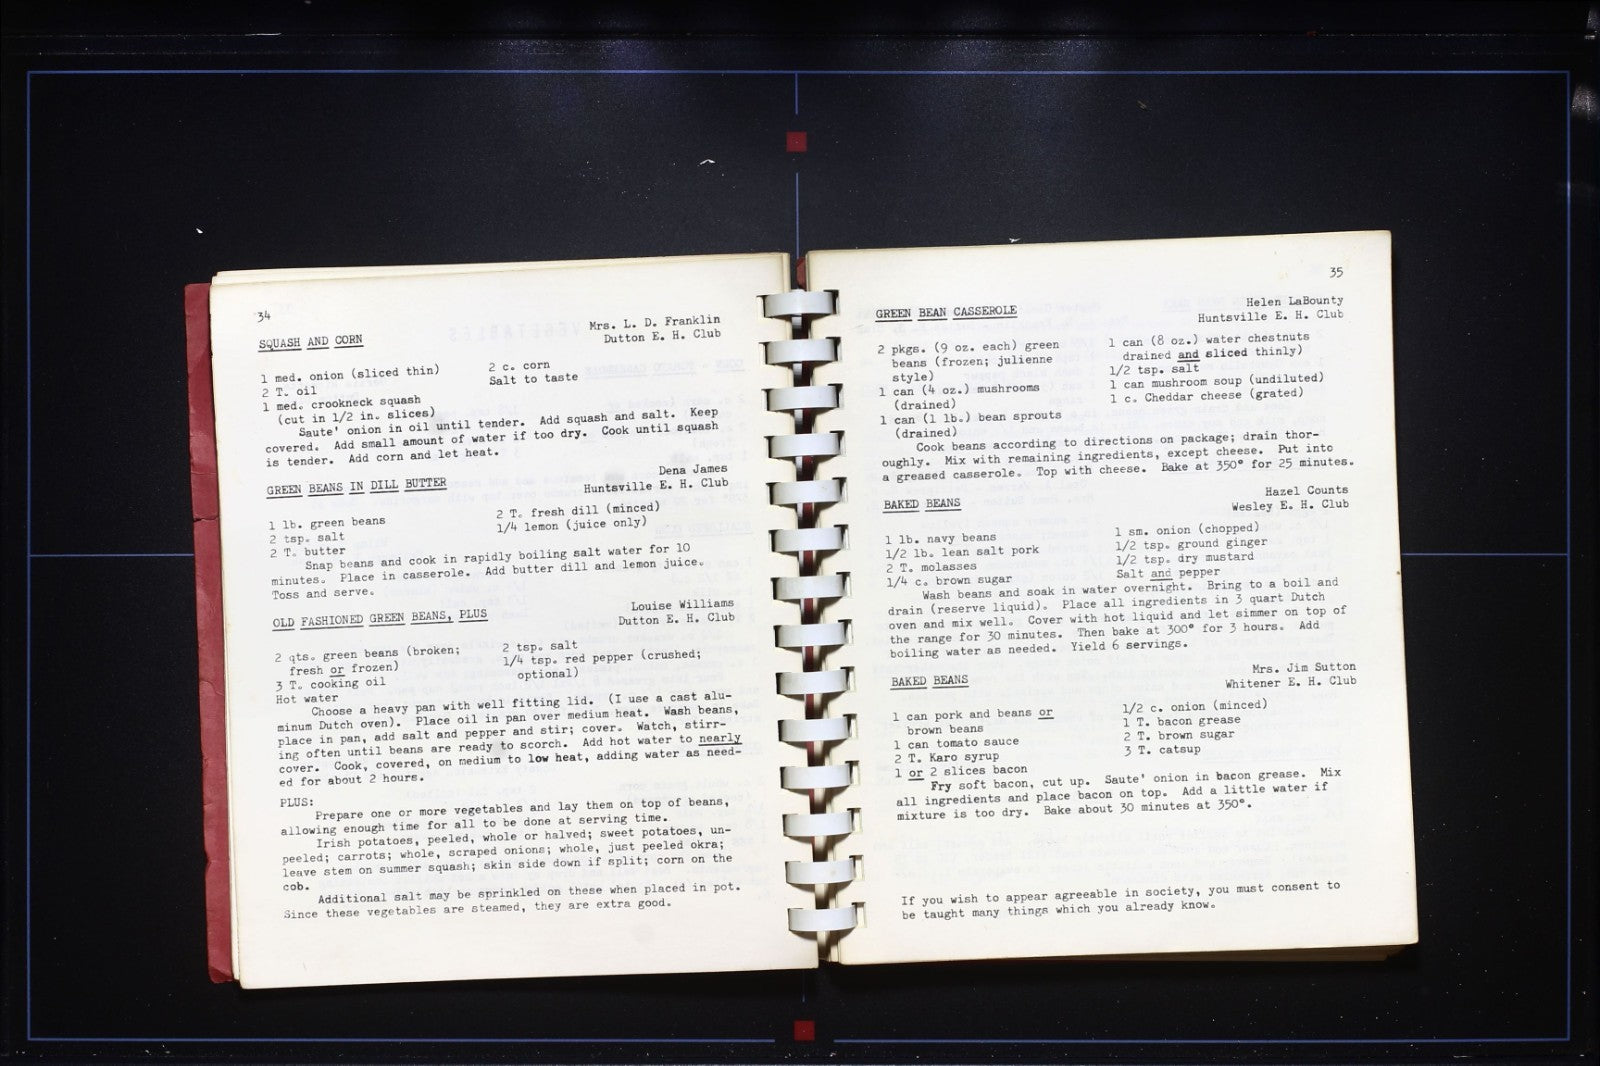 34
SQUASH AND CORN
Mrs. L. D. Franklin
Dutton E. H. Club
1 med. onion (sliced thin)
2 T. oil
1 med. crookneck squash
(cut in 1/2 in. slices)
2 c. corn
Salt to taste
Saute' onion in oil until tender. Add squash and salt. Keep
covered. Add small amount of water if too dry. Cook until squash
is tender. Add corn and let heat.
GREEN BEANS IN DILL BUTTER
Dena James
Huntsville E. H. Club
1 lb. green beans
2 tsp. salt
2 T. butter
2 T. fresh dill (minced)
1/4 lemon (juice only)
Snap beans and cook in rapidly boiling salt water for 10
minutes. Place in casserole. Add butter dill and lemon juice.
Toss and serve.
OLD FASHIONED GREEN BEANS, PLUS
Louise Williams
Dutton E. H. Club
2 qts. green beans (broken;
fresh or frozen)
3 T. cooking oil
Hot water
2 tsp. salt
1/4 tsp. red pepper (crushed;
optional)
Choose a heavy pan with well fitting lid. (I use a cast alu-
minum Dutch oven). Place oil in pan over medium heat. Wash beans,
place in pan, add salt and pepper and stir; cover. Watch, stirr-
ing often until beans are ready to scorch. Add hot water to nearly
cover. Cook, covered, on medium to low heat, adding water as need-
ed for about 2 hours.
PLUS:
Prepare one or more vegetables and lay them on top of beans,
allowing enough time for all to be done at serving time.
Irish potatoes, peeled, whole or halved; sweet potatoes, un-
peeled; carrots; whole, scraped onions; whole, just peeled okra;
leave stem on summer squash; skin side down if split; corn on the
cob.
Additional salt may be sprinkled on these when placed in pot.
Since these vegetables are steamed, they are extra good.
35
GREEN BEAN CASSEROLE
Helen LaBounty
Huntsville E. H. Club
2 pkgs. (9 oz. each) green
beans (frozen; julienne
style)
1 can (4 oz.) mushrooms
(drained)
1 can (1 lb.) bean sprouts
(drained)
1 can (8 oz.) water chestnuts
drained and sliced thinly)
1/2 tsp. salt
1 can mushroom soup (undiluted)
1 c. Cheddar cheese (grated)
Cook beans according to directions on package; drain thor-
oughly. Mix with remaining ingredients, except cheese. Put into
a greased casserole. Top with cheese. Bake at 350° for 25 minutes.
BAKED BEANS
Hazel Counts
Wesley E. H. Club
1 lb. navy beans
1/2 lb. lean salt pork
2 T. molasses
1/4 c. brown sugar
1 sm. onion (chopped)
1/2 tsp. ground ginger
1/2 tsp. dry mustard
Salt and pepper
Wash beans and soak in water overnight. Bring to a boil and
drain (reserve liquid). Place all ingredients in 3 quart Dutch
oven and mix well. Cover with hot liquid and let simmer on top of
the range for 30 minutes. Then bake at 300° for 3 hours. Add
boiling water as needed. Yield 6 servings.
BAKED BEANS
Mrs. Jim Sutton
Whitener E. H. Club
1 can pork and beans or
brown beans
1 can tomato sauce
2 T. Karo syrup
1 or 2 slices bacon
1/2 c. onion (minced)
1 T. bacon grease
2 T. brown sugar
3 T. catsup
Fry soft bacon, cut up. Saute' onion in bacon grease. Mix
all ingredients and place bacon on top. Add a little water if
mixture is too dry. Bake about 30 minutes at 350°.
If you wish to appear agreeable in society, you must consent to
be taught many things which you already know.